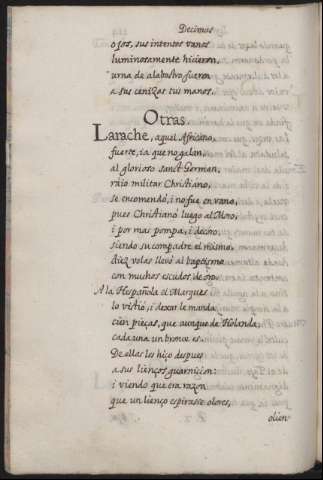 Decimas
ojos, sus intentos vanos
luminosamente hicieron,
urna de alabastro fueron
a sus cenizas tus manos.
Otras
Larache, aquel Africano,
fuerte, ia que no galan,
al glorioso sanct German,
raio militar Christiano,
se encomendó, i no fue en vano,
pues Christianó luego al Moro,
i por mas pompa, i decoro,
siendo su compadre el mismo,
diez velas llevó al baptismo
con muchos escudos de oro.
A la Hespañola el Marques
lo vistió, i dexar le manda
cien pieças, que aunque de Holanda,
cada una un bronce es.
De ellas les hiço despues
a sus lienços guarnicion:
i viendo que era razon
que un lienço espirasse olores,
olien